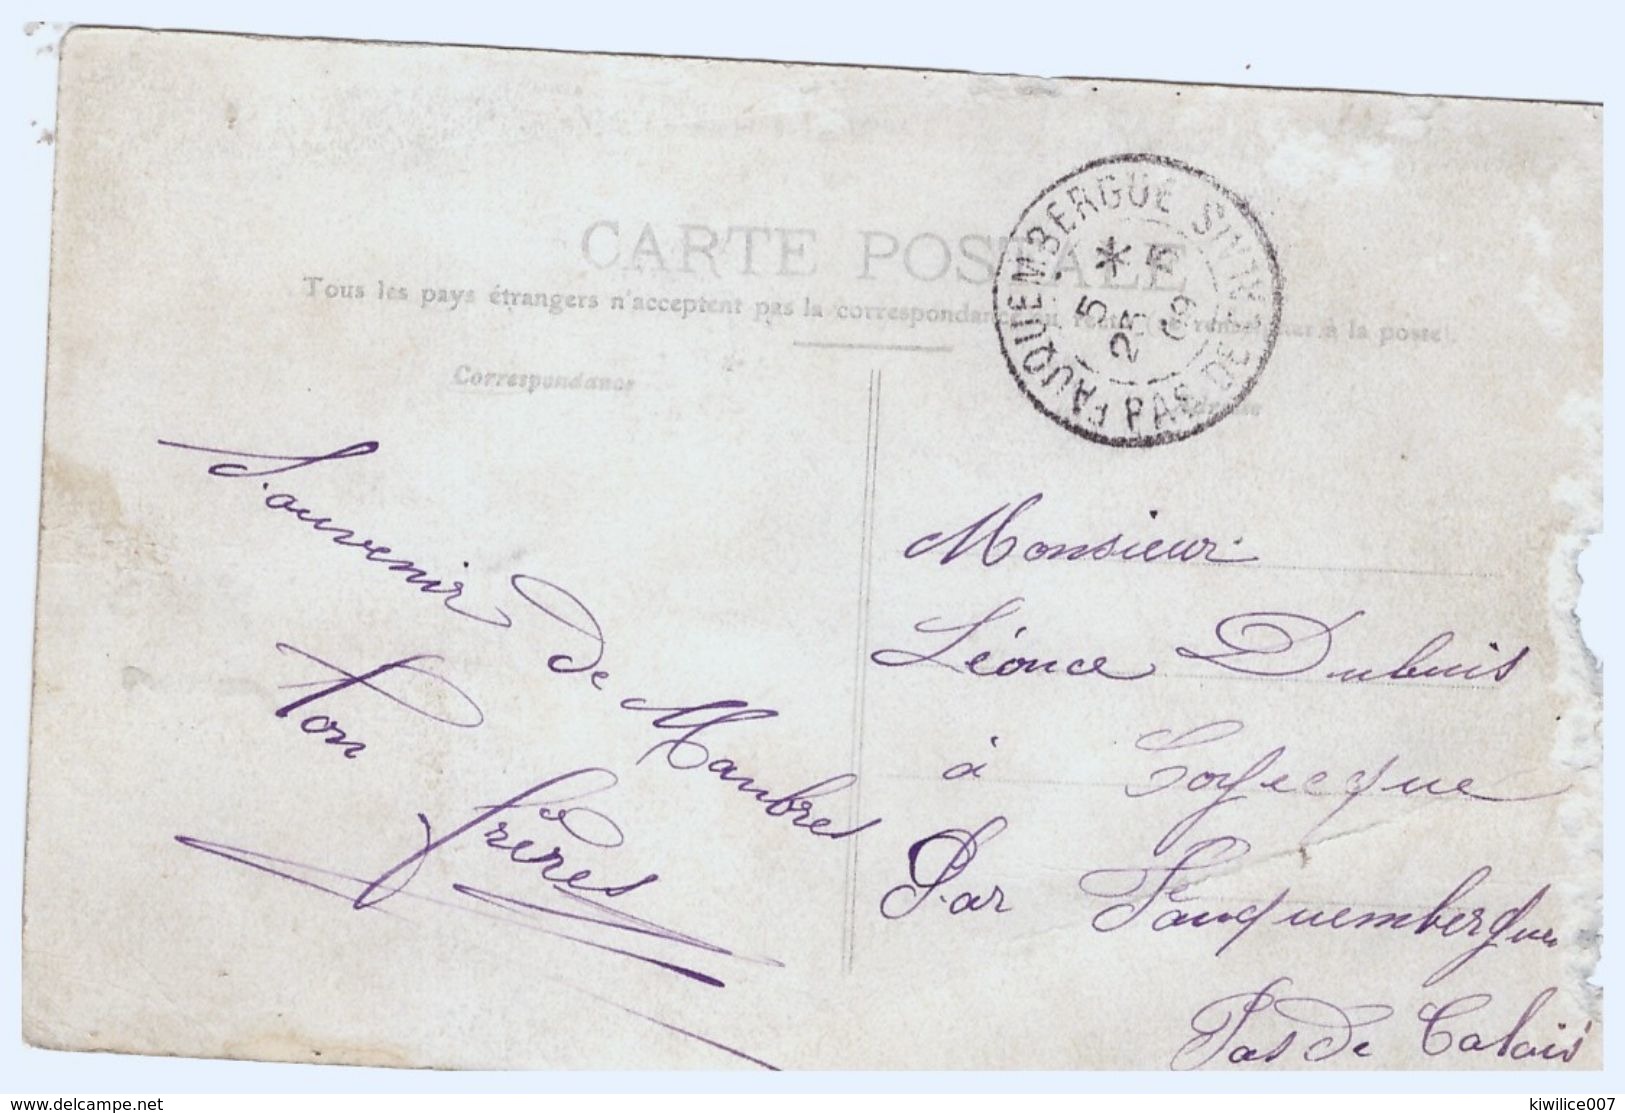 CARTE POSTALE
Tous les pays étrangers n'acceptent pas la correspondance au recto (se renseigner à la poste)
Correspondance
Adresse
FAUQUEMBERGUE
PAS DE
5
23
09
Souvenir de Maubres
ton frères
Monsieur
Léonce Dubuis
à Coyecque
Par Fauquembergues
Pas de Calais
www.delcampe.net
kiwilice007